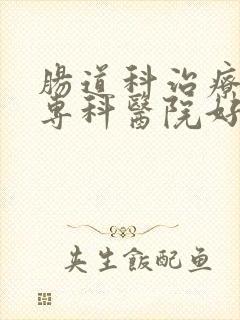 腸道科治療
專科醫院好
夹生飯配鱼